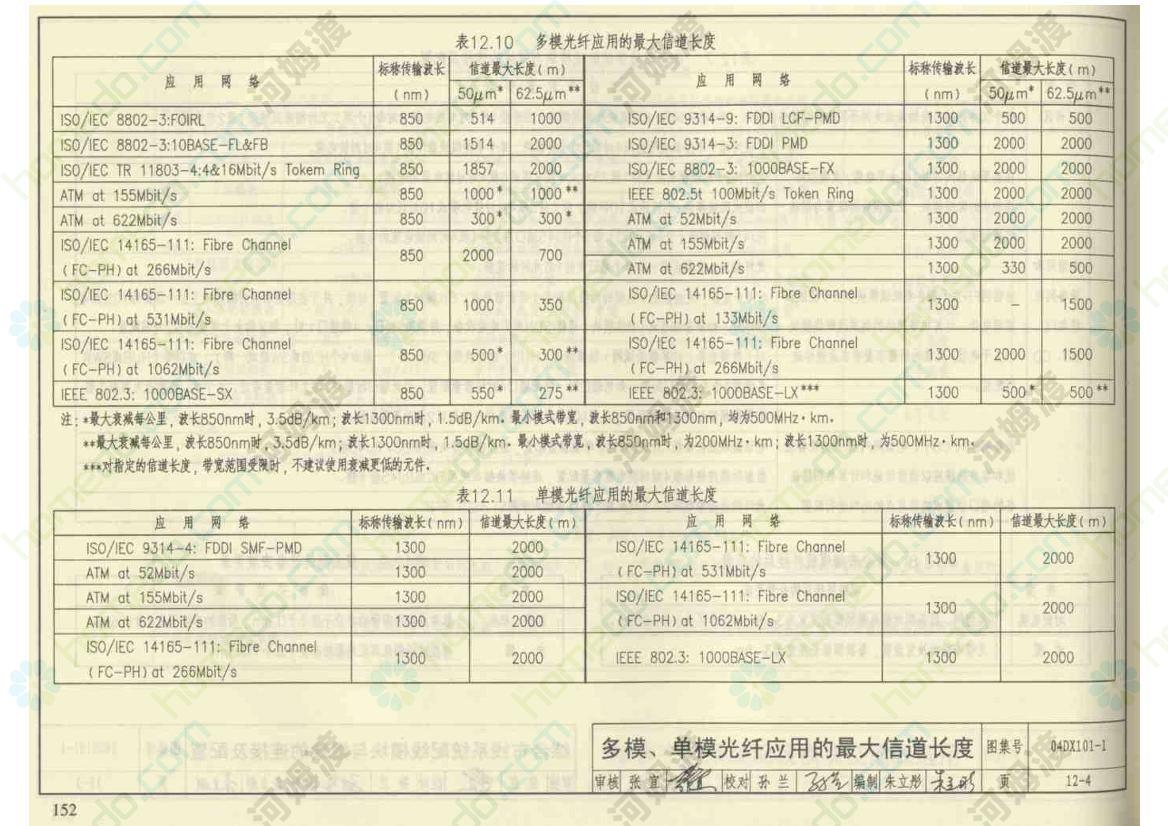 表12.10 多模光纤应用的最大信道长度
应 用 网 络 标称传输波长(nm) 信道最大长度(m) 50μm* 62.5μm** 应 用 网 络 标称传输波长(nm) 信道最大长度(m) 50μm* 62.5μm**
ISO/IEC 8802-3:FOIRL 850 514 1000 ISO/IEC 9314-9: FDDI LCF-PMD 1300 500 500
ISO/IEC 8802-3:10BASE-FL&FB 850 1514 2000 ISO/IEC 9314-3: FDDI PMD 1300 2000 2000
ISO/IEC TR 11803-4:4&16Mbit/s Tokem Ring 850 1857 2000 ISO/IEC 8802-3: 1000BASE-FX 1300 2000 2000
ATM at 155Mbit/s 850 1000* 1000** IEEE 802.5t 100Mbit/s Token Ring 1300 2000 2000
ATM at 622Mbit/s 850 300* 300* ATM at 52Mbit/s 1300 2000 2000
ISO/IEC 14165-111: Fibre Channel ATM at 155Mbit/s 1300 2000 2000
(FC-PH)at 266Mbit/s 850 2000 700 ATM at 622Mbit/s 1300 330 500
ISO/IEC 14165-111: Fibre Channel ISO/IEC 14165-111: Fibre Channel
(FC-PH)at 531Mbit/s 850 1000 350 (FC-PH)at 133Mbit/s 1300 – 1500
ISO/IEC 14165-111: Fibre Channel ISO/IEC 14165-111: Fibre Channel
(FC-PH)at 1062Mbit/s 850 500* 300** (FC-PH)at 266Mbit/s 1300 2000 1500
IEEE 802.3: 1000BASE-SX 850 550* 275** IEEE 802.3: 1000BASE-LX*** 1300 500* 500**
注: *最大衰减每公里, 波长850nm时, 3.5dB/km; 波长1300nm时, 1.5dB/km. 最小模式带宽, 波长850nm和1300nm, 均为500MHz·km.
**最大衰减每公里, 波长850nm时, 3.5dB/km; 波长1300nm时, 1.5dB/km. 最小模式带宽, 波长850nm时, 为200MHz·km; 波长1300nm时, 为500MHz·km.
***对指定的信道长度, 带宽范围受限时, 不建议使用衰减更低的元件.
表12.11 单模光纤应用的最大信道长度
应 用 网 络 标称传输波长(nm) 信道最大长度(m) 应 用 网 络 标称传输波长(nm) 信道最大长度(m)
ISO/IEC 9314-4: FDDI SMF-PMD 1300 2000 ISO/IEC 14165-111: Fibre Channel
ATM at 52Mbit/s 1300 2000 (FC-PH)at 531Mbit/s 1300 2000
ATM at 155Mbit/s 1300 2000 ISO/IEC 14165-111: Fibre Channel
ATM at 622Mbit/s 1300 2000 (FC-PH)at 1062Mbit/s 1300 2000
ISO/IEC 14165-111: Fibre Channel
(FC-PH)at 266Mbit/s 1300 2000 IEEE 802.3: 1000BASE-LX 1300 2000
多模、单模光纤应用的最大信道长度 图集号 04DX101-1
审核 张宜 校对 孙兰 编制 朱立彤 朱立彤 页 12-4
152
河姆渡
homedo.com